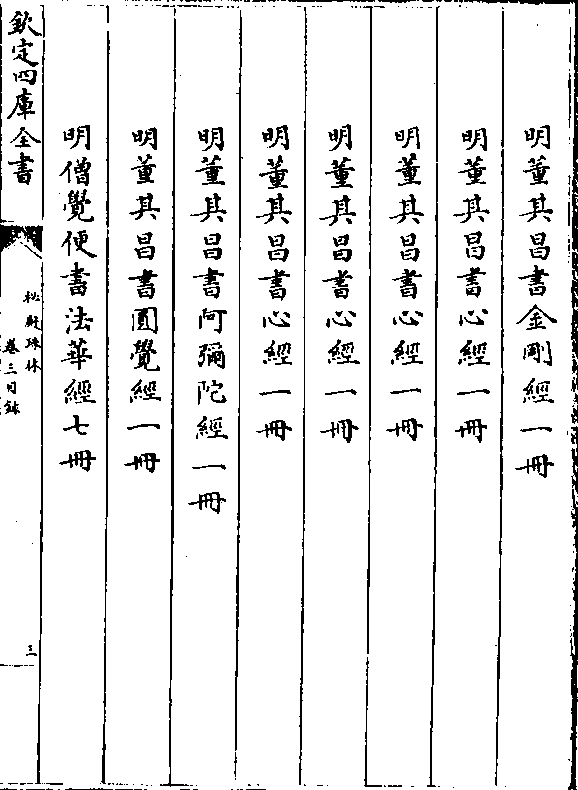 明董其昌書金剛經一冊
明董其昌書心經一冊
明董其昌書心經一冊
明董其昌書心經一冊
明董其昌書心經一冊
明董其昌書阿彌陀經一冊
明董其昌書圓覺經一冊
明僧覺便書法華經七冊
欽定四庫全書
秘殿珠林
卷三目録
三